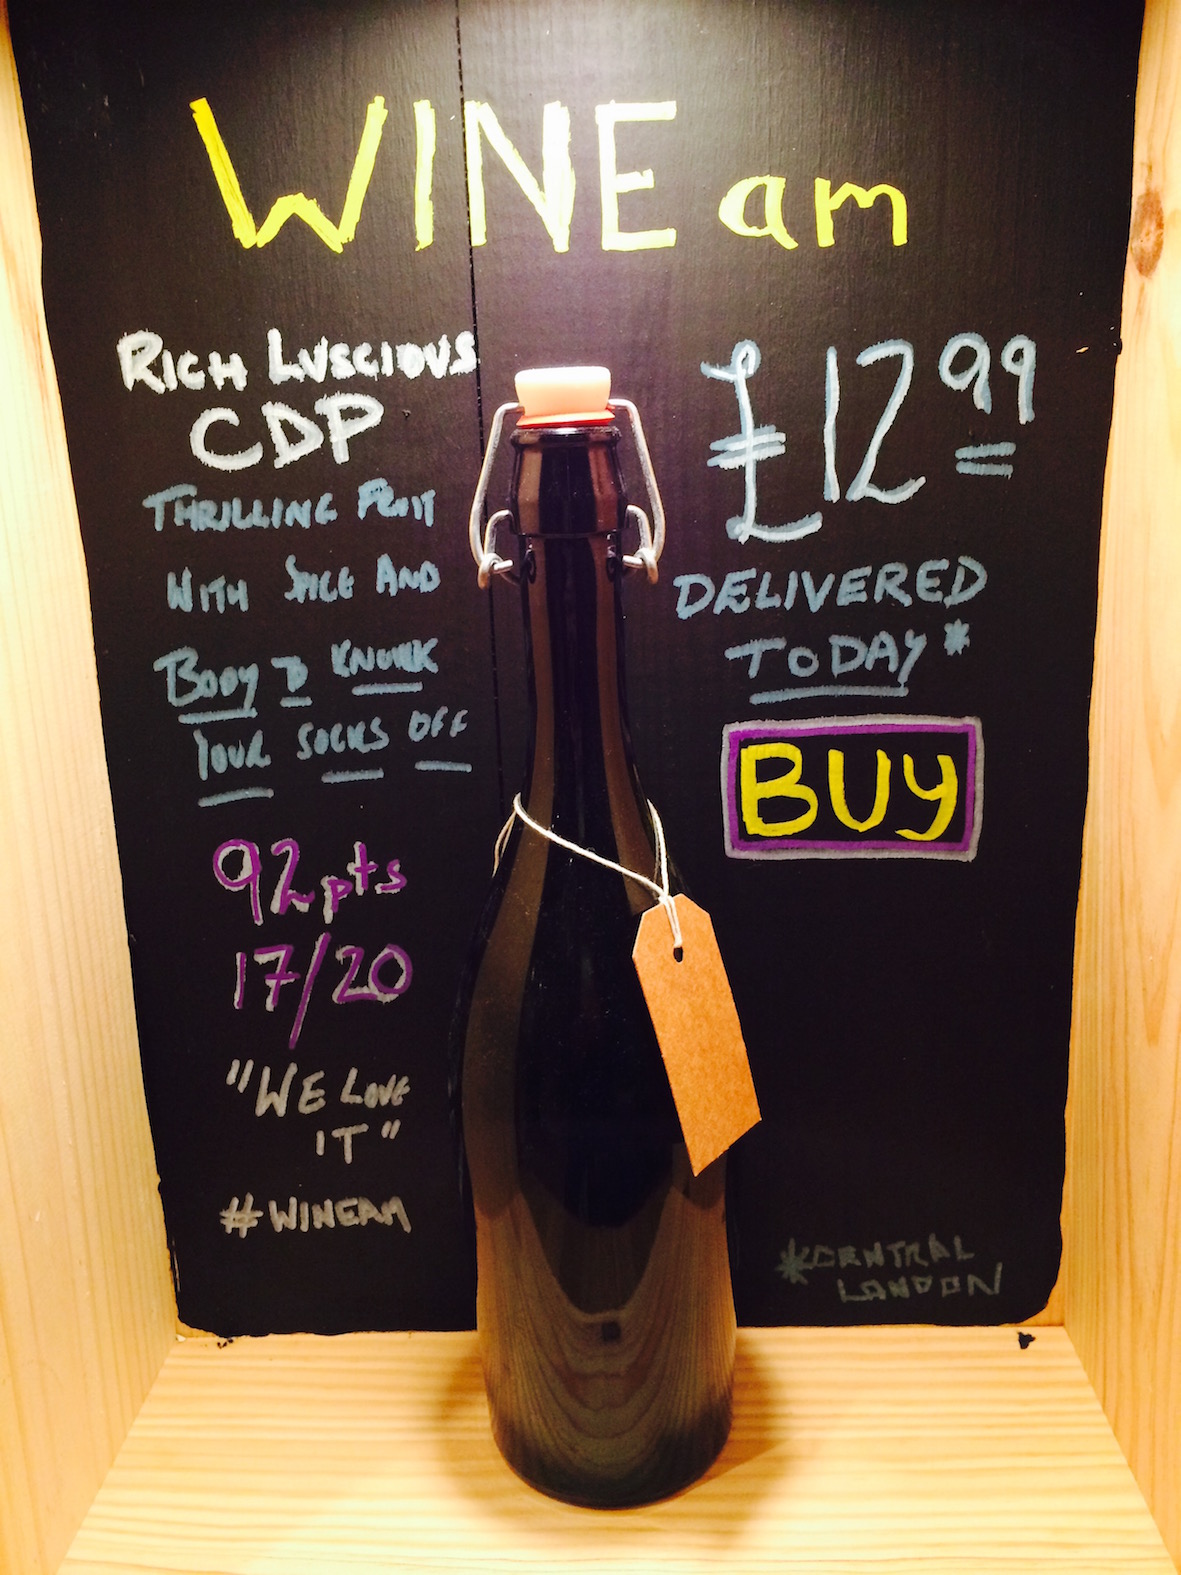 WINE am
RICH LUSCIOUS
CDP
THRILLING FRUIT
WITH SPICE AND
BODY TO KNOCK
YOUR SOCKS OFF
92 pts
17/20
"WE LOVE
IT"
#WINEAM
£12 99
DELIVERED
TODAY*
BUY
*CENTRAL
LONDON